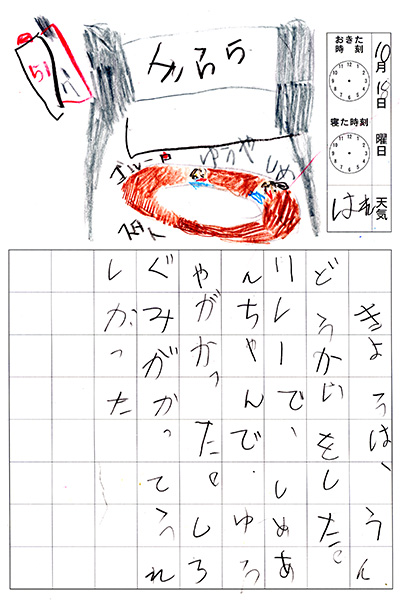 10月18日 曜日
はれ 天気
おきた
時刻
寝た時刻
ゆうや
しめ
きょうは、うん
どうかいをした。
リレーで、しめあ
んちゃんで、ゆう
やがかった。しろ
ぐみがかってうれ
しかった